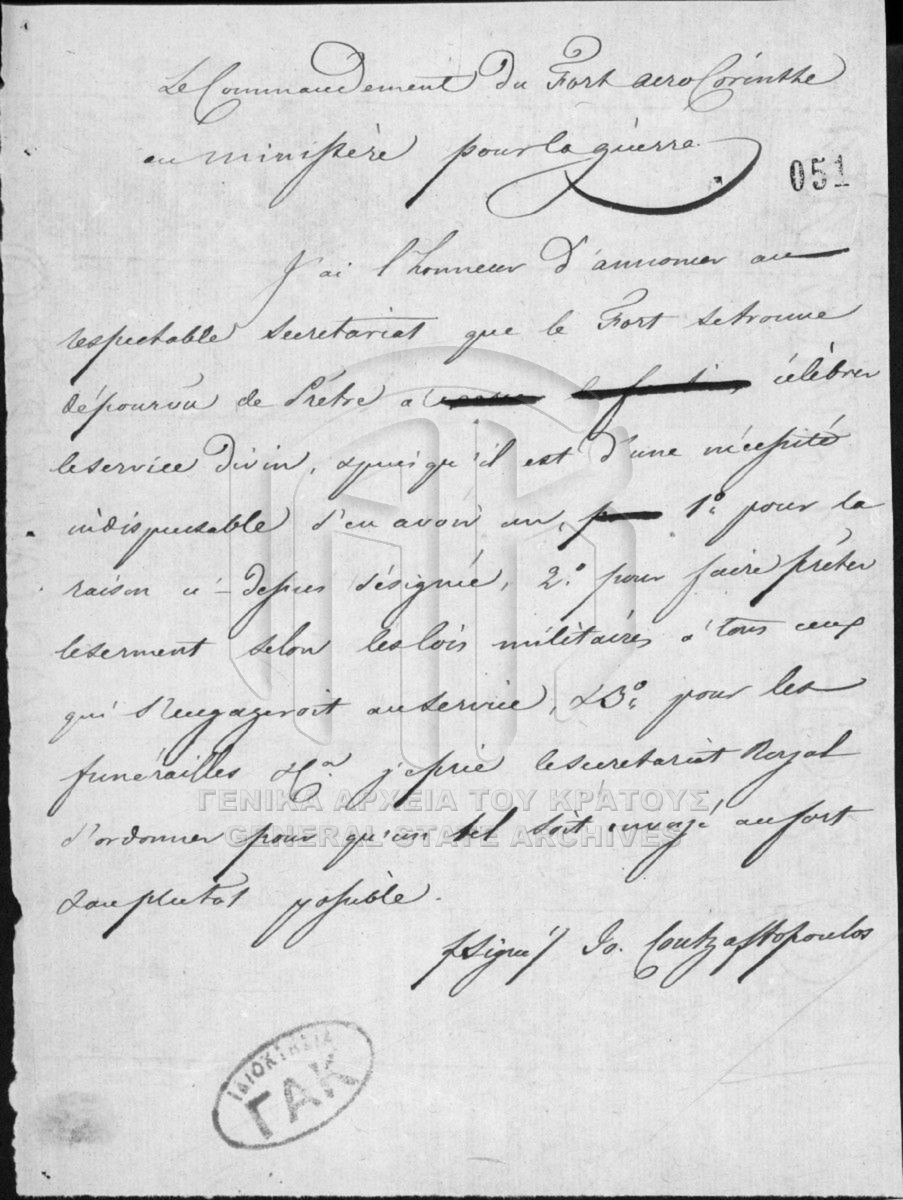 Le Commandement du Fort acro Corinthe
au ministère pour la guèrre
051
J'ai l'honneur d'annoncer au
respectable secretariat que le Fort se trouve
dépourvu de Prêtre à célébrer
le service divin, & puisqu'il est d'une nécessité
indispensable d'en avoir un, 1º pour la
raison ci-dessus désignée, 2º pour faire prêter
le serment selon les lois militaires à tous ceux
qui s'engageroit au service, & 3º pour les
funérailles &a. je prie le secretariat Royal
ΓΕΝΙΚΑ ΑΡΧΕΙΑ ΤΟΥ ΚΡΑΤΟΥΣ
d'ordonner pour qu'un tel soit envoyé au fort
GENERAL STATE ARCHIVES
& au plutot possible.
(signé) Io. Coutzaftopoulos
ΙΔΙΟΚΤΗΣΙΑ
ΓΑΚ